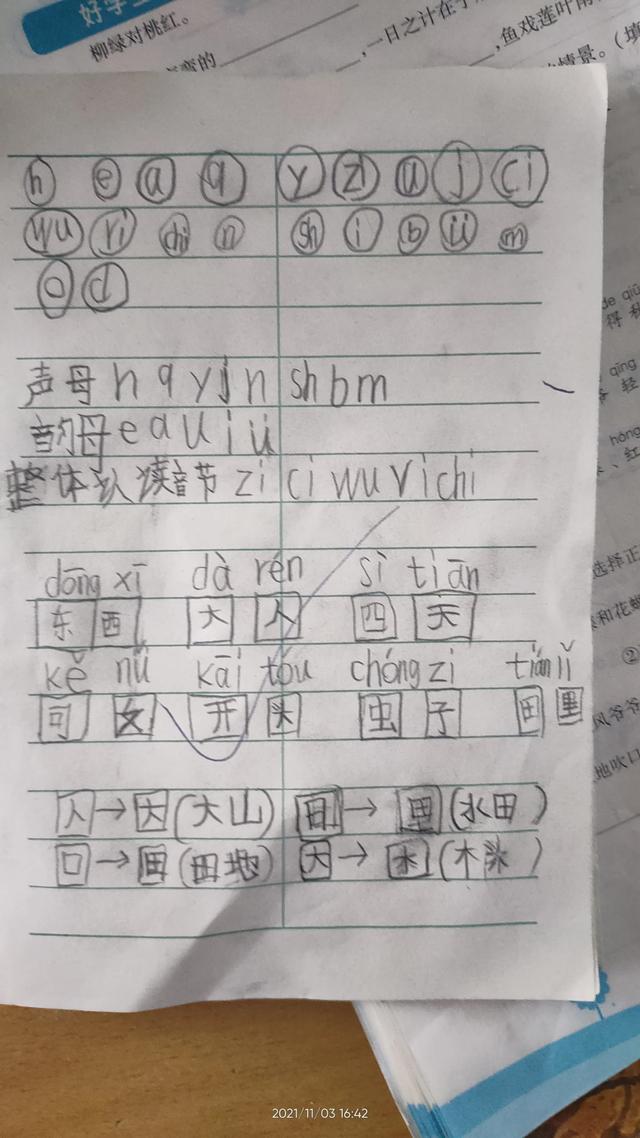 好学
柳绿对桃红。
变的
,一日之计在于
,鱼戏莲叶
情景。(填
h e a q y zi u j ci
wu ri chi n sh i b ü m
o d
声母 h q y j n sh b m
韵母 e a u i ü
整体认读音节 zi ci wu ri chi
dōng xī dà rén sì tiān
东 西 大 人 四 天
kě nǚ kāi tóu chóng zi tián lǐ
可 女 开 头 虫 子 田 里
人→大(大山) 日→田(水田)
口→田(田地) 大→木(木头)
de qiū
得 秋
qīng
轻
hóng
、红
选择正
和花
②
风爷爷
地吹口
2021/11/03 16:42